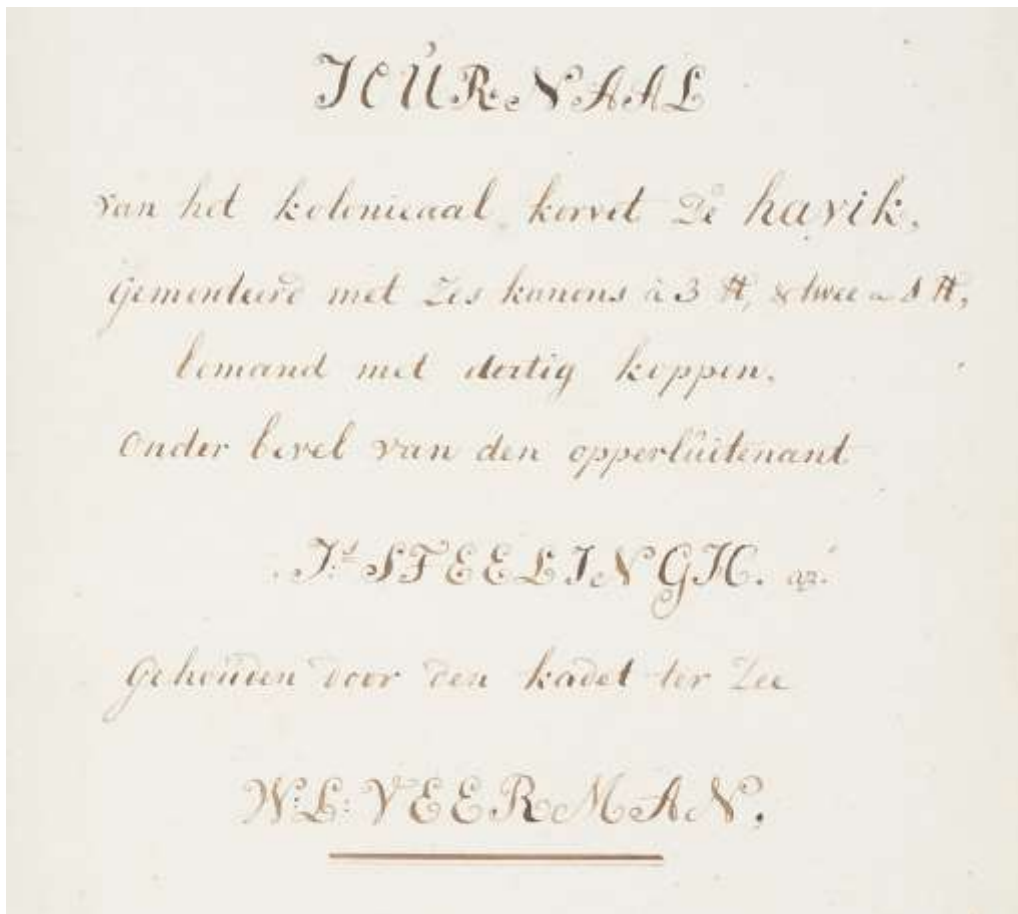 JOURNAAL
van het kolonieaal korvet De havik,
Gemonteerd met Zes kanons à 3 ℔, & twee a 1 ℔,
bemand met dertig koppen.
Onder bevel van den opperlúitenant
J:s STEELINGH.
Gehoúden door den kadet ter Zee
W: L: VEERMAN.